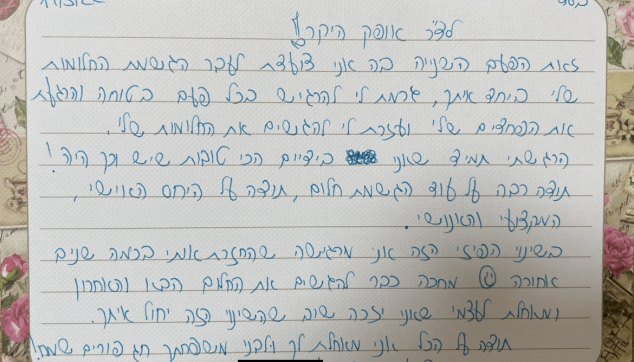 בס"ד
לד"ר אופק היקר!
זאת הפעם השנייה בה אני צועדת לעבר הגשמת החלומות
שלי ביחד איתך, גרמת לי להרגיש בכל פעם בטוחה והרגעת
את הפחדים שלי ועזרת לי להגשים את החלומות שלי,
הרגשתי תמיד שאני בידיים הכי טובות שיש וכך היה!
תודה רבה על עוד הגשמת חלום, תודה על היחס האישי,
המקצועי והאנושי.
בשינוי הפיזי הזה אני מרגישה שהחזרת אותי בכמה שנים
אחורה מחכה כבר להגשים את החלום הבא והאחרון
ומאחלת לעצמי שאני אזכה שוב שהשינוי הזה יחול איתך.
תודה על הכל אני מאחלת לך ולבני משפחתך חג פורים שמח!